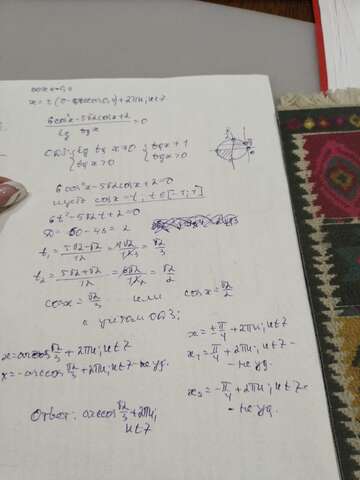 6cos²x-5√2cosx+2
lg tgx
=0
ОДЗ: { lg tgx≠0 { tgx≠1
tgx>0 tgx>0
6cos²x-5√2cosx+2=0
пусть cosx=t, t∈[-1;1]
6t²-5√2t+2=0
D=50-48=2
t₁=(5√2-√2)/12=4√2/12=√2/3
t₂=(5√2+√2)/12=6√2/12=√2/2
cosx=√2/3 или cosx=√2/2
с учетом ОДЗ:
x=arccos√2/3+2πn, n∈Z
x=-arccos√2/3+2πn, n∈Z-не уд.
x=±π/4+2πn, n∈Z
x₁=π/4+2πn, n∈Z-
-не уд.
x₂=-π/4+2πn, n∈Z-
-не уд.
Ответ: arccos√2/3+2πn,
n∈Z